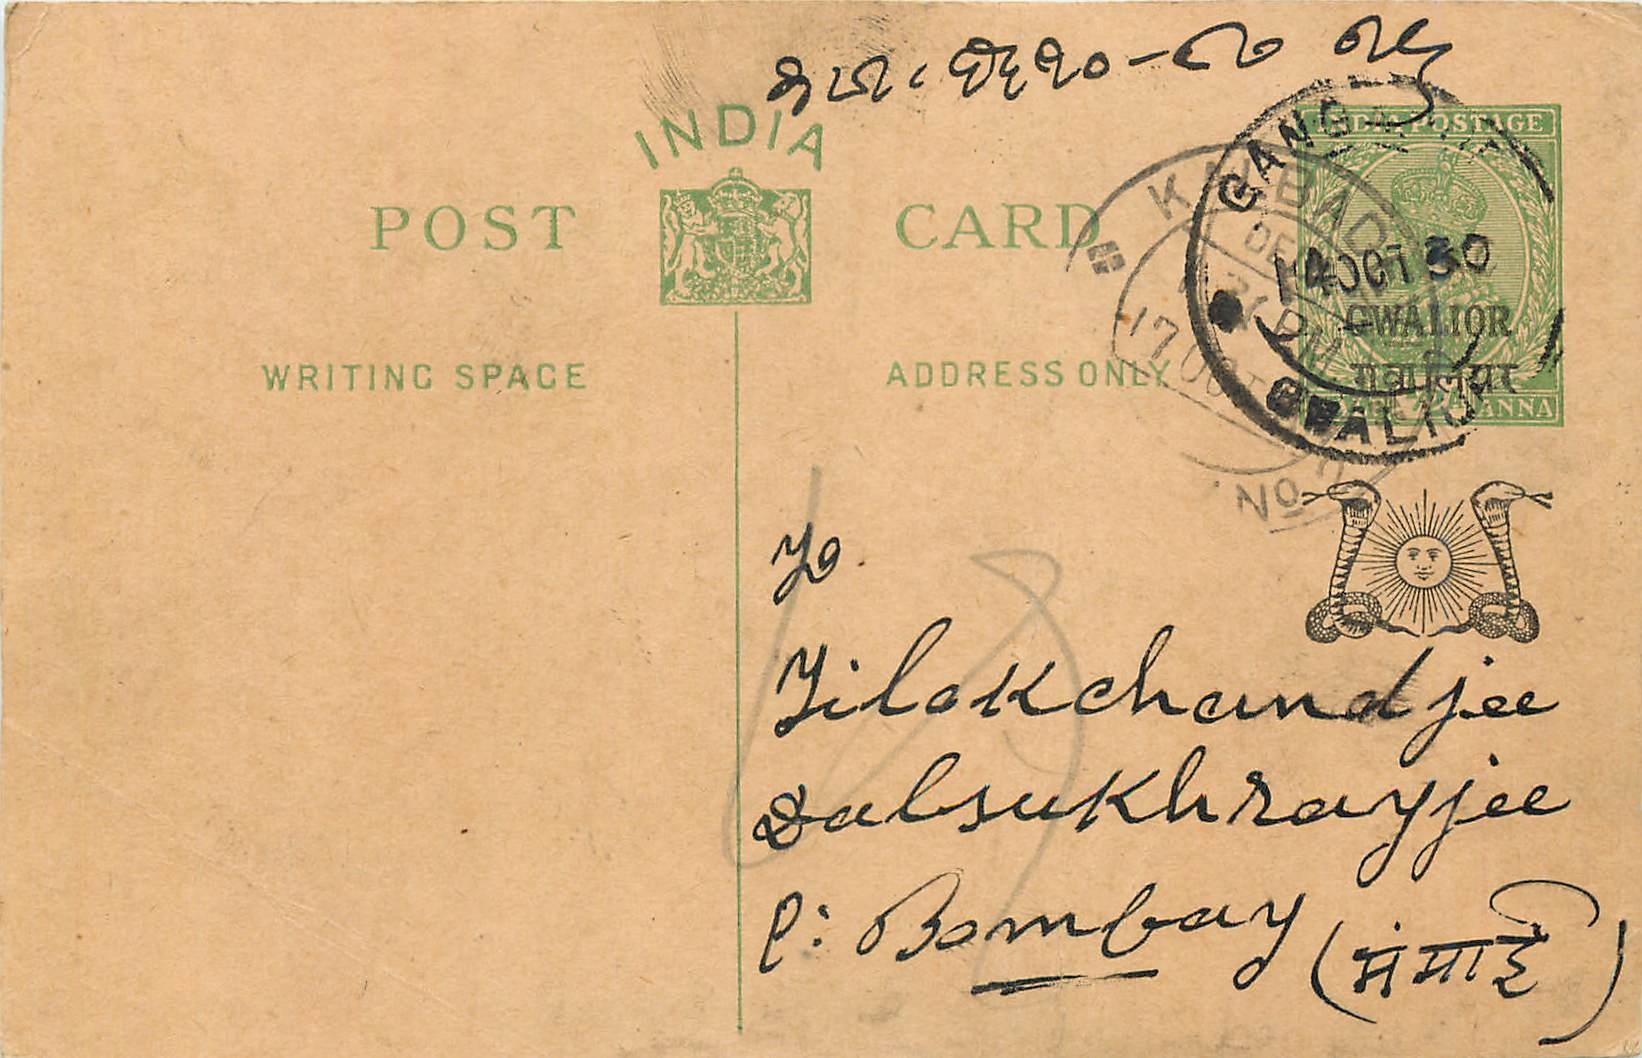 INDIA
POST CARD
WRITING SPACE
ADDRESS ONLY
INDIA POSTAGE
14 OCT 30
GWALIOR
ग्वालियर
ANNA
GWALIOR
17 OCT
No
To
Tilokchandjee
Dalsukhrayjee
P: Bombay
(मंमाई)